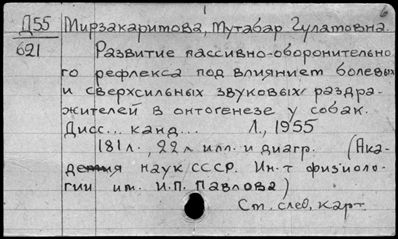 6
Д55 Мирзакаримова, Мутабар Гулатовна
621 Развитие пассивно-оборонительно
го рефлекса под влиянием болевых
и сверхсильных звуковых раздра-
жителей в онтогенезе у собак.
Дисс... канд... Л., 1955
181л., 22л илл. и диагр. (Ака-
демия наук СССР. Ин-т физиоло-
гии им. И.П. Павлова)
См. след. карт.